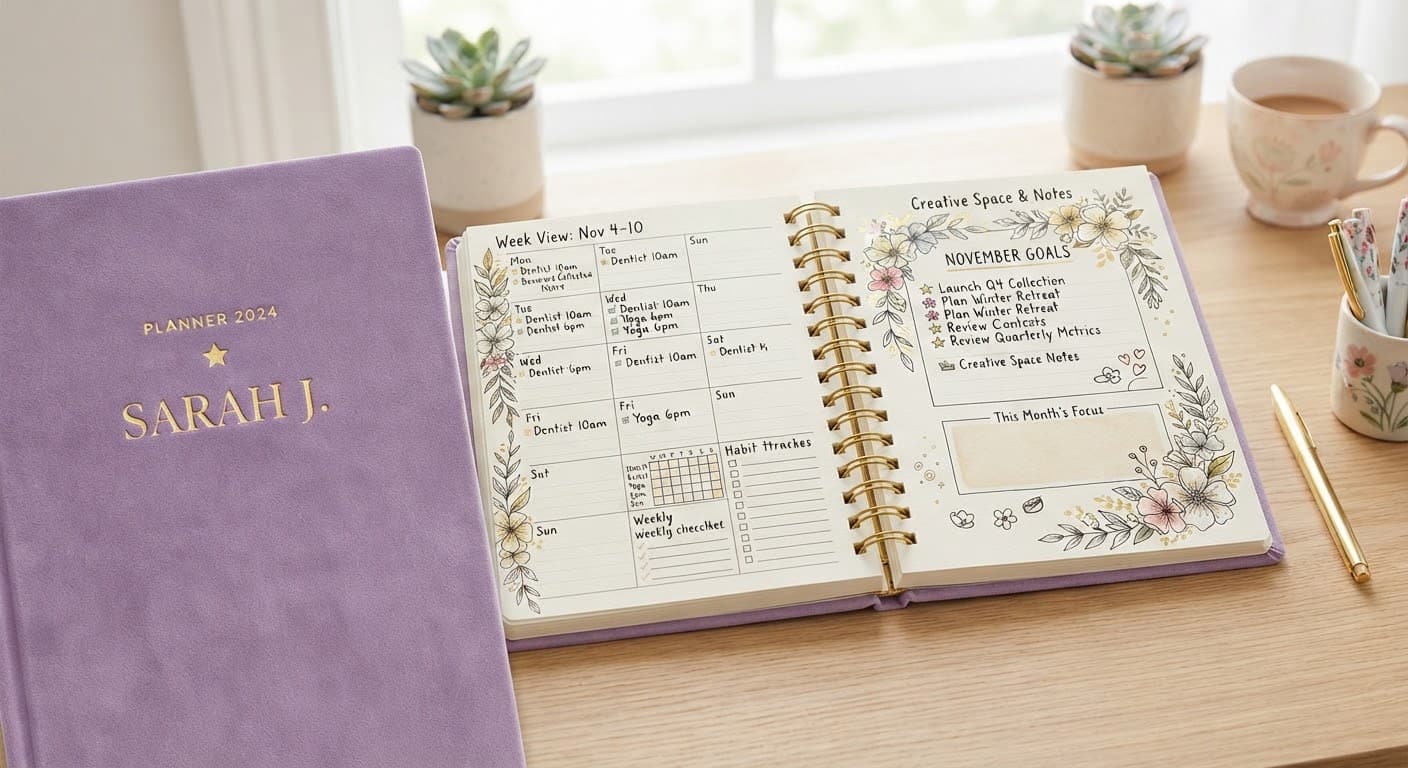 PLANNER 2024
SARAH J.
Week View: Nov 4-10
Mon
10am
Tue
Dentist 10am
Dentist 6pm
Wed
Dentist 6pm
Fri
Dentist 10am
Sat
Sun
Toe
Dentist 10am
Wed
Dentist 10am
Yoga 6pm
Yoga 6pm
Fri
Dentist 10am
Fri
Yoga 6pm
Weekly
weekly checcket
Sun
Thu
Sat
Dentist
Sun
Habit
Creative Space & Notes
NOVEMBER GOALS
Launch Q4 Collection
Plan Winter Retreat
Plan Winter Retreat
Review
Review Quarterly Metrics
Creative Space Notes
This Month's Focus